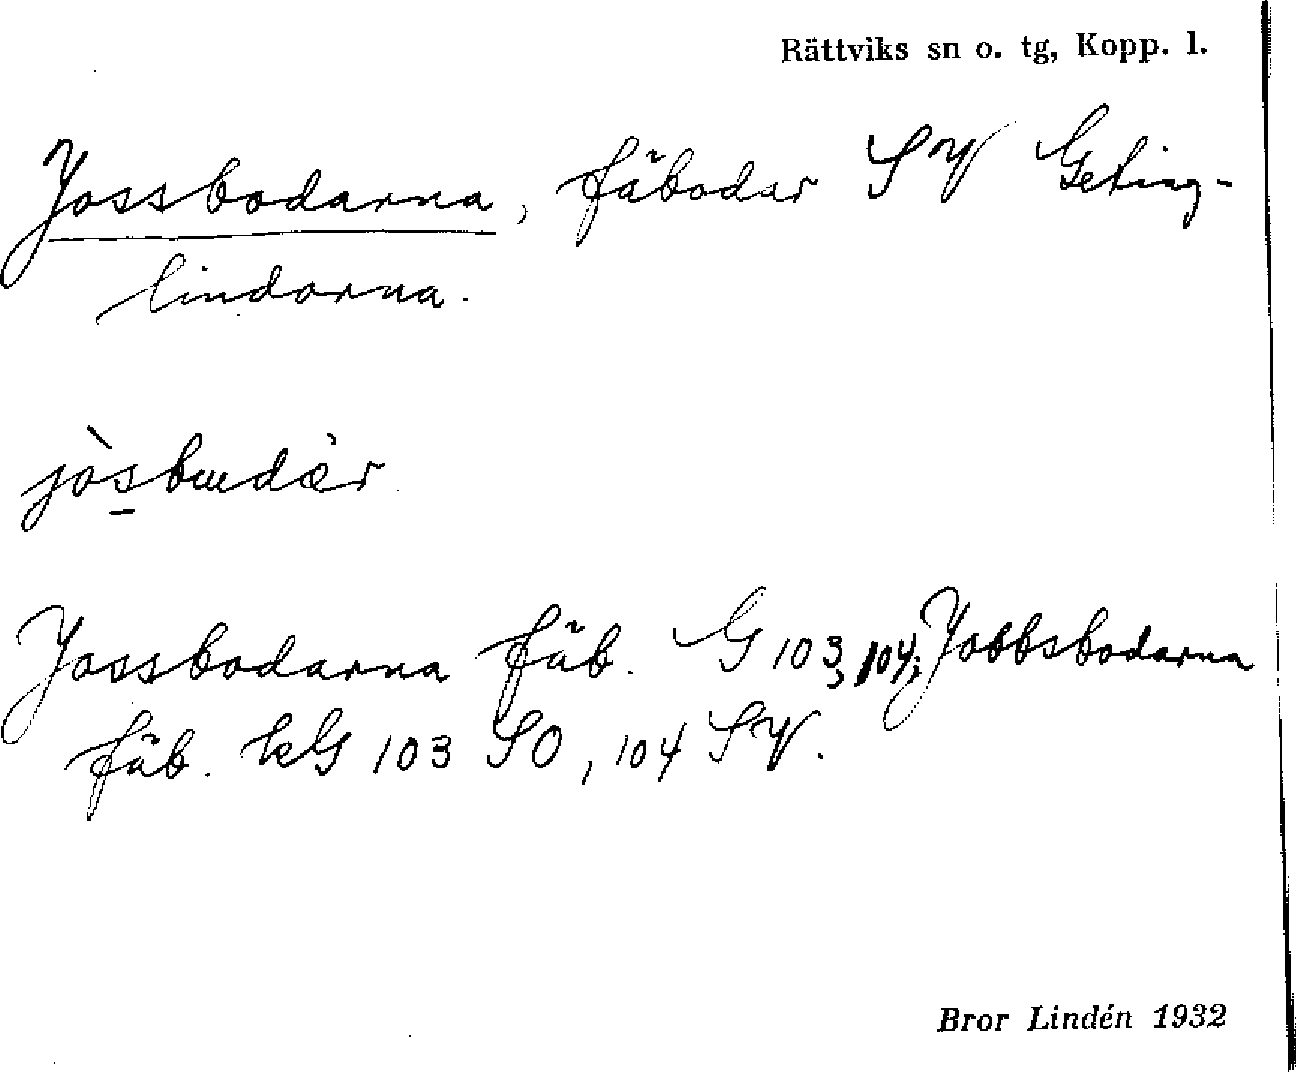 Rättviks sn o. tg, Kopp. l.
Jossbodarna, fäbodar SV Geting-
lindorna.
jòsbudær
Jossbodarna fäb. G 103, 104; Jobbsbodarna
fäb. kG 103 SO, 104 SV.
Bror Lindén 1932